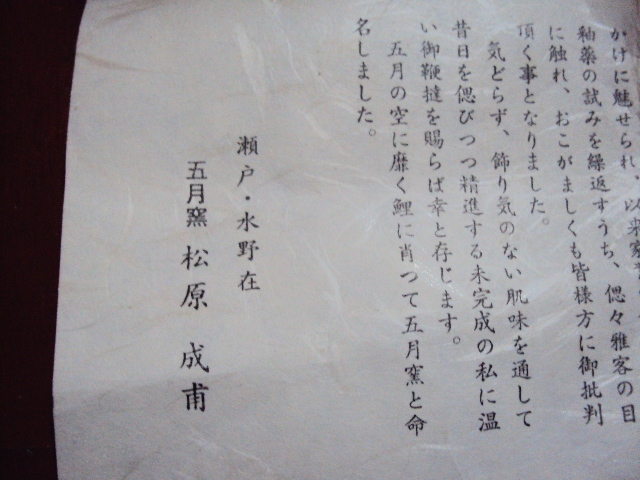 かけに魅せられ、以来
釉薬の試みを繰返すうち、偲々雅客の目
に触れ、おこがましくも皆様方に御批判
頂く事となりました。
気どらず、飾り気のない肌味を通して
昔日を偲びつつ精進する未完成の私に温
い御鞭撻を賜らば幸と存じます。
五月の空に靡く鯉に肖つて五月窯と命
名しました。
瀬戸・水野在
五月窯 松原 成甫